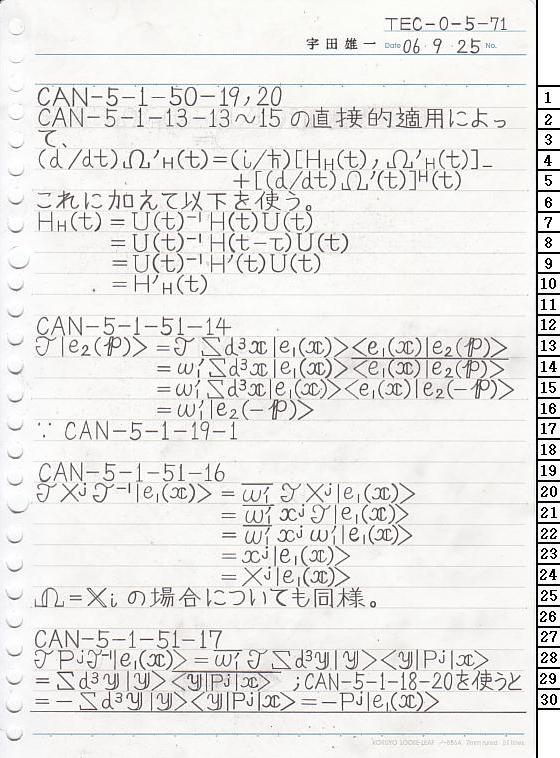 TEC-0-5-71
宇田雄一 Date 06・9・25 No.
CAN-5-1-50-19,20
CAN-5-1-13-13〜15の直接的適用によっ
て、
(d/dt)Ω'H(t)=(i/ħ)[HH(t), Ω'H(t)]_
+[(d/dt)Ω'(t)]ᴴ(t)
これに加えて以下を使う。
HH(t) = U(t)⁻¹ H(t) U(t)
= U(t)⁻¹ H(t-τ) U(t)
= U(t)⁻¹ H'(t) U(t)
= H'H(t)
CAN-5-1-51-14
𝒯|e₂(𝕡)> = 𝒯 ∑d³x|e₁(x)><e₁(x)|e₂(𝕡)>
= ω₁' ∑d³x|e₁(x)> <e₁(x)|e₂(𝕡)>
= ω₁' ∑d³x|e₁(x)><e₁(x)|e₂(-𝕡)>
= ω₁'|e₂(-𝕡)>
∵ CAN-5-1-19-1
CAN-5-1-51-16
𝒯 Xʲ 𝒯⁻¹|e₁(x)> = ω₁' 𝒯 Xʲ|e₁(x)>
= ω₁' xʲ 𝒯|e₁(x)>
= ω₁' xʲ ω₁'|e₁(x)>
= xʲ|e₁(x)>
= Xʲ|e₁(x)>
Ω=Xi の場合についても同様。
CAN-5-1-51-17
𝒯 Pʲ 𝒯⁻¹|e₁(x)> = ω₁' 𝒯 ∑d³y|y><y|Pʲ|x>
= ∑d³y|y><y|Pʲ|x> ;CAN-5-1-18-20を使うと
= -∑d³y|y><y|Pʲ|x> = -Pʲ|e₁(x)>
KOKUYO LOOSE-LEAF ノ-836A 7mm ruled 31 lines
1
2
3
4
5
6
7
8
9
10
11
12
13
14
15
16
17
18
19
20
21
22
23
24
25
26
27
28
29
30